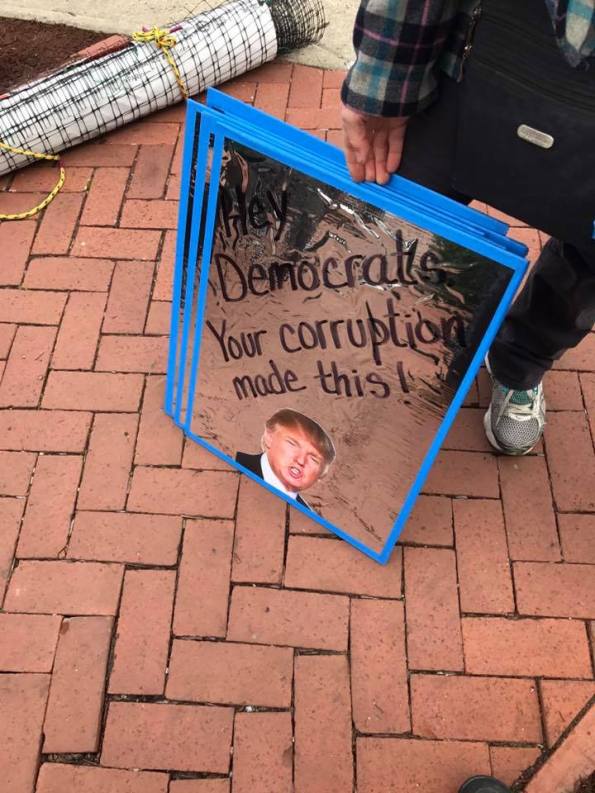 Hey
Democrats.
Your corruption
made this!